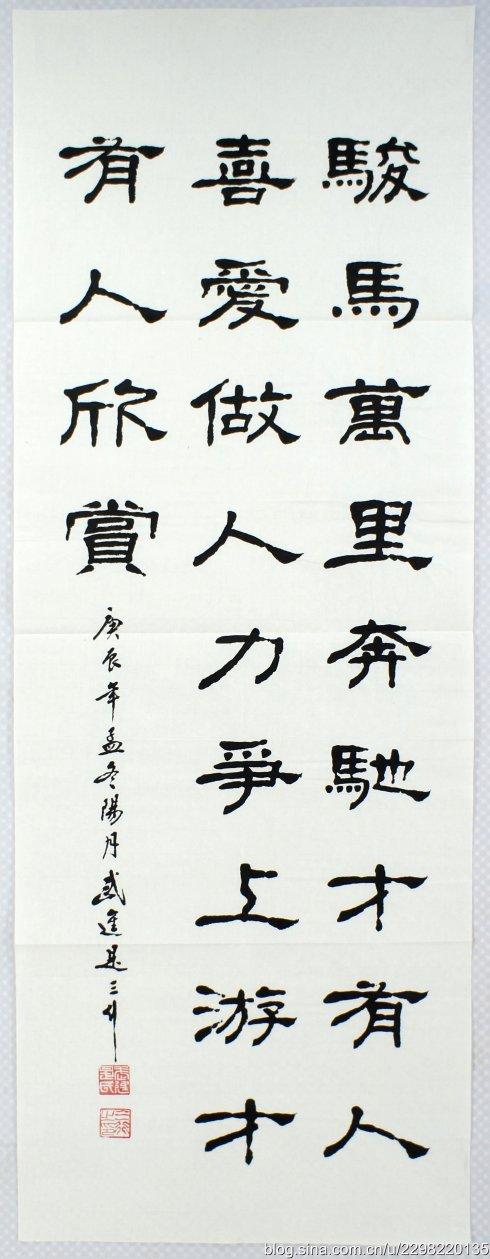 駿馬萬里奔馳才有人
喜愛做人力爭上游才
有人欣賞
庚辰年孟冬陽月
blog.sina.com.cn/u/2298220135